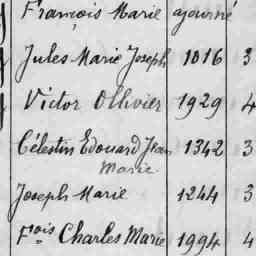 François Marie ajourné
Jules Marie Joseph 1016 3
Victor Ollivier 1929 4
Célestin Edouard Jean 1342 3
Marie
Joseph Marie 1244 3
Fçois Charles Marie 1994 4